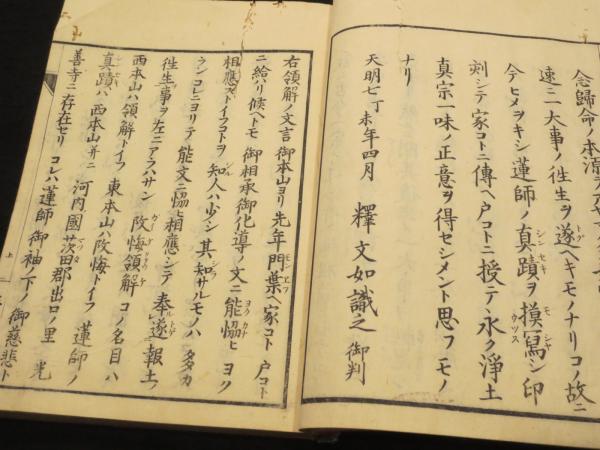 念歸命ノ本源
速ニ一大事ノ往生ヲ遂ヘキモノナリコノ故ニ
今ヒメヲキシ蓮師ノ真蹟ヲ摸寫シ印
刻シテ家コトニ傳ヘ戸コトニ授テ永ク淨土
真宗一味ノ正意ヲ得セシメント思フモノ
ナリ
天明七丁未年四月 釋文如識之 御判
右領解ノ文言御本山ヨリ先年門葉ヘ家コト戸コト
ニ給ハリ候ヘトモ御相承御化導ノ文ニ能恊ヒヨク
相應ストイフコトヲ知人ハ少シ其知サルモノハ多カ
ランコレニヨリテ能文ニ恊ヒ相應シテ奉遂報土ノ
往生事ヲ左ニアラハサン改悔領解コノ名目ハ
西本山ハ領解トイフ東本山ハ改悔トイフ蓮師ノ
真蹟ハ西本山并ニ河内國茨田郡出口ノ里光
善寺ニ存在セリコレハ蓮師御袖ノ下ノ御慈悲ト
上